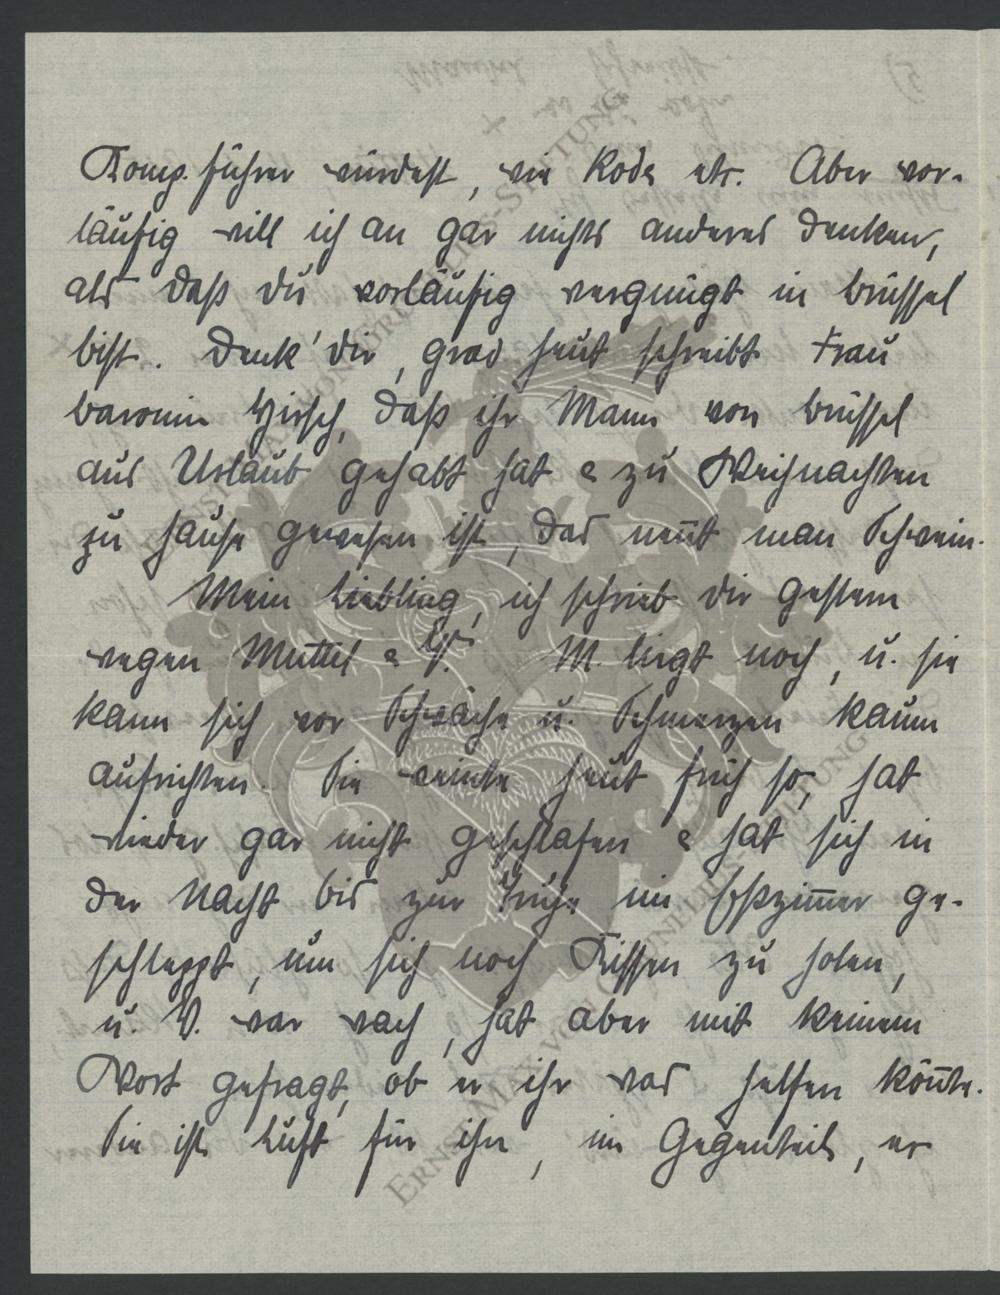 Komp. führer würdest, wie Rode etc. Aber vor-
läufig will ich an gar nichts anderes denken,
als daß du vorläufig vergnügt in Brüssel
bist. Denk' dir, grad heut schreibt Frau
Baronin Hirsch, daß ihr Mann von Brüssel
aus Urlaub gehabt hat & zu Weihnachten
zu Hause gewesen ist, das neñt man Schwein.
Mein Liebling, ich schrieb dir gestern
wegen Muttel & V. M. liegt noch, u. sie
kann sich vor Schwäche u. Schmerzen kaum
aufrichten. Sie weinte heut früh so, hat
wieder gar nicht geschlafen & hat sich in
der Nacht bis zur Truhe im Eßzim̄er ge-
schleppt, um sich noch Kissen zu holen,
u. V. war wach, hat aber mit keinem
Wort gefragt, ob er ihr was helfen kön̄te.
Sie ist Luft für ihn, im Gegenteil, er
ERNST-MAX-VON GRUNELIUS-STIFTUNG
ERNST-MAX-VON GRUNELIUS-STIFTUNG